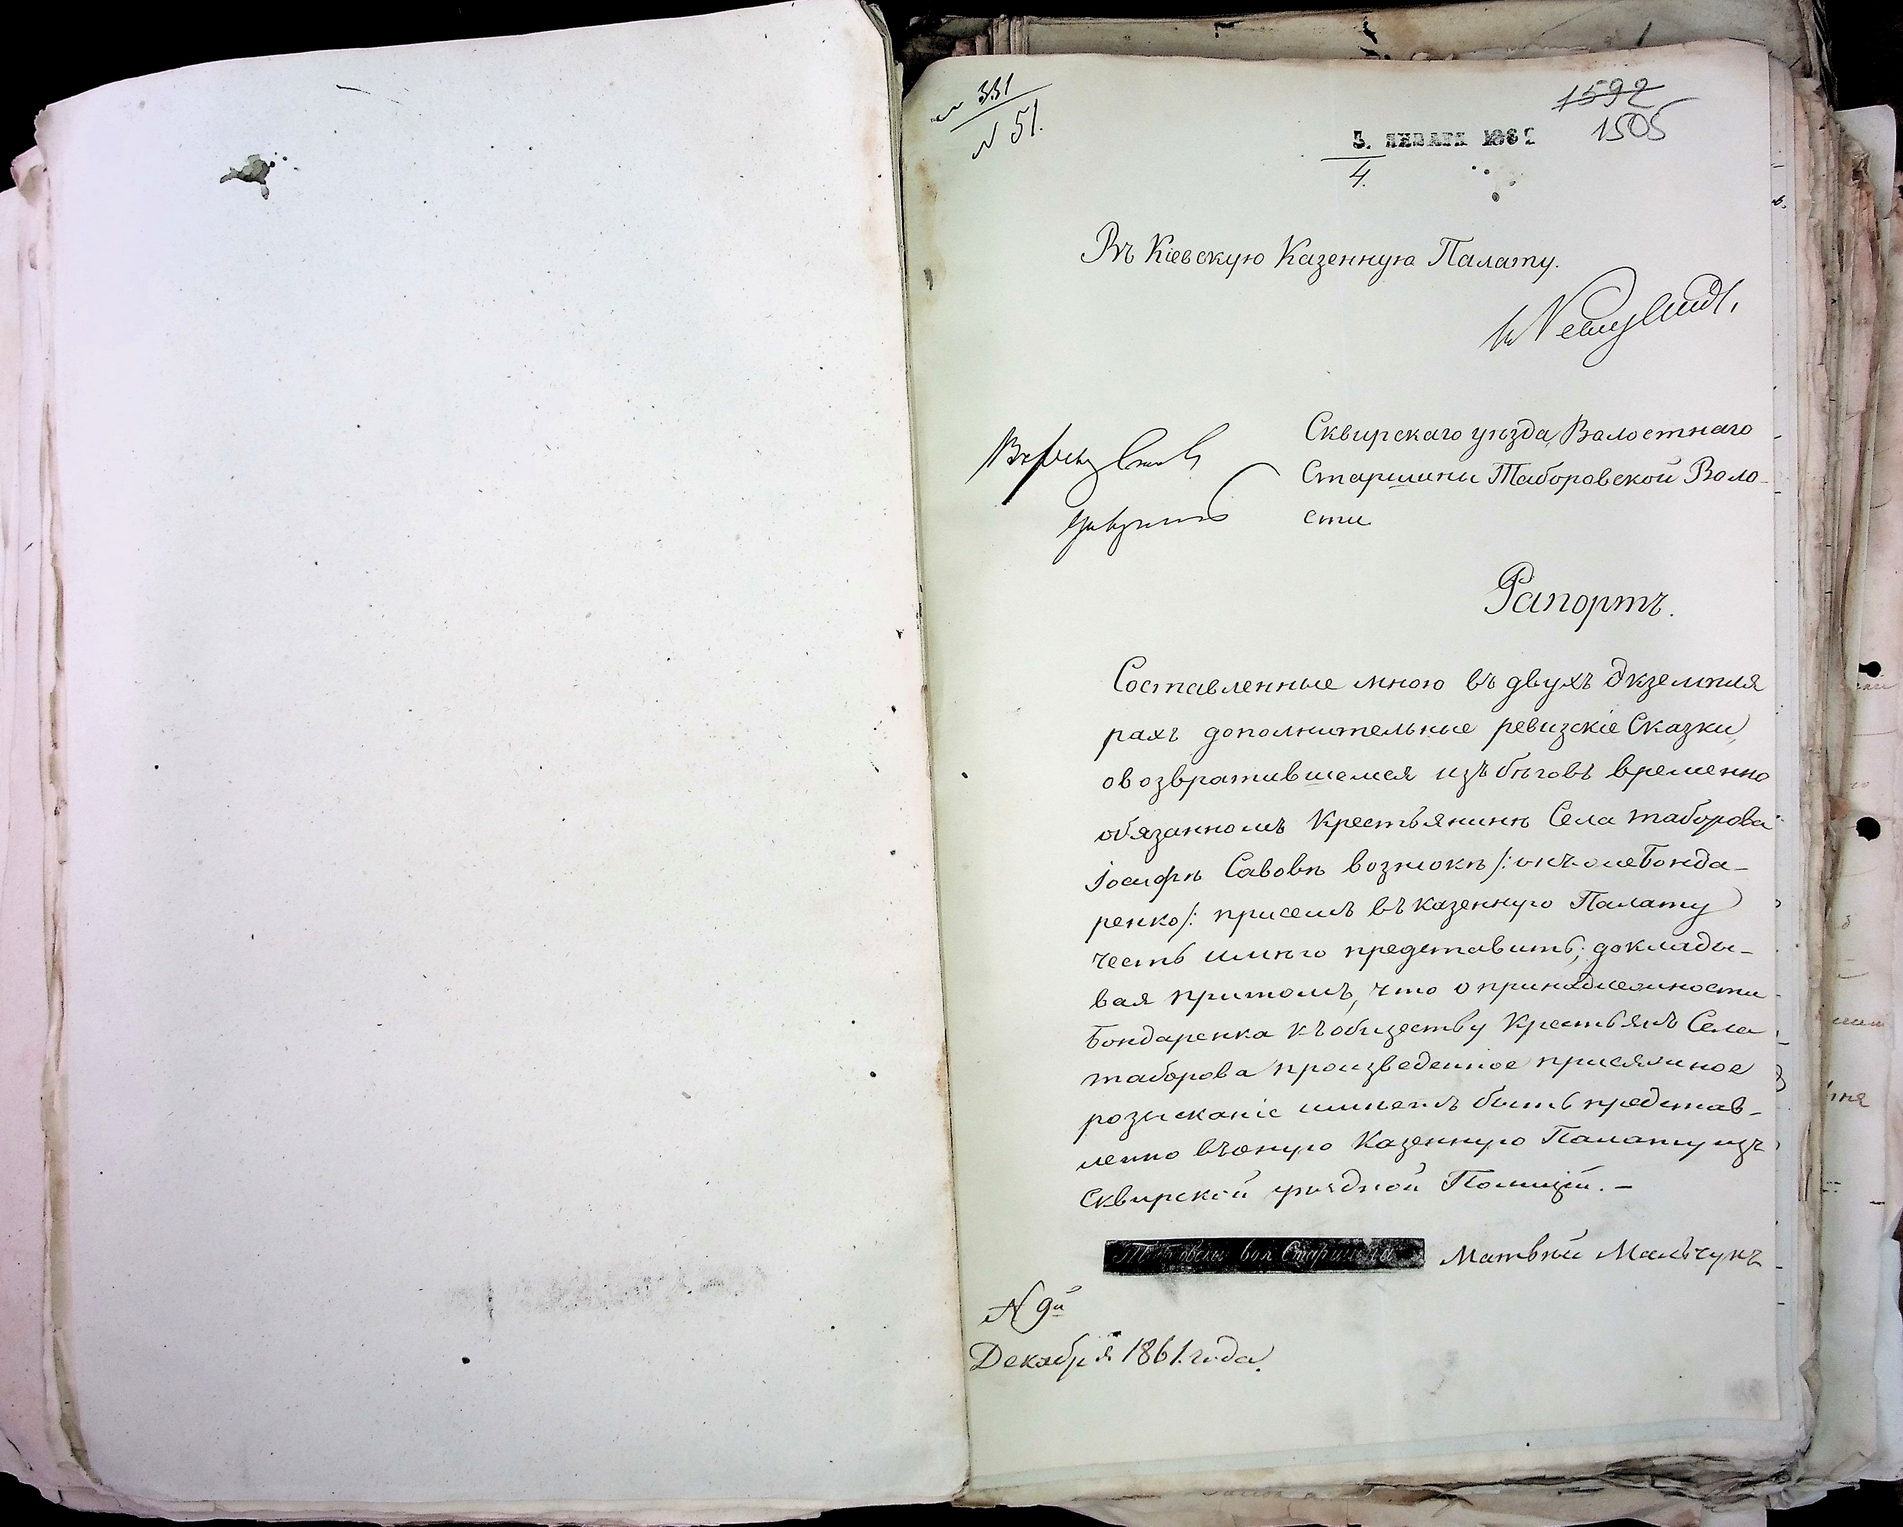 N 331
N 51.
1592
1505
3. ЯНВАРЯ 1862
4.
Въ Кіевскую Казенную Палату.
Сквирскаго уѣзда, Волостнаго
Старшини Таборовской Воло-
сти
Рапортъ.
Составленные мною въ двухъ Экземпля
рахъ дополнительные ревизскіе Сказки,
о возвратившемся изъ бѣговъ временно
обязанномъ Крестьянинѣ Села таборова
Іосифѣ Савовѣ
ренко/: присемъ въ казенную Палату
честь имѣю представить; доклады-
вая притомъ, что о принадлежности
Бондаренка къ обществу Крестьянъ Села
таборова произведенное присяжное
розысканіе имѣетъ быть представ-
лено въ оную Казенную Палату изъ
Сквирской уѣздной Полиціи. -
Вол Старшина Матвѣй Мальчукъ
N 9й
Декабря 1861 года.